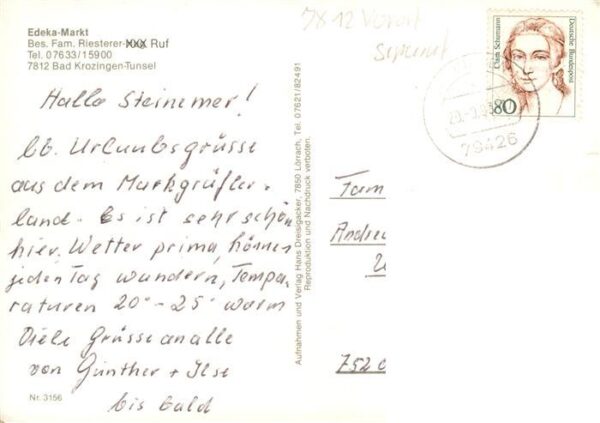 Edeka-Markt
Bes. Fam. Riesterer- Ruf
Tel. 07633/15900
7812 Bad Krozingen-Tunsel
Hallo Steinemer!
lb. Urlaubsgrüsse
aus dem Markgräfler-
land. Es ist sehr schön
hier. Wetter prima, können
jeden Tag wandern, Tempe-
raturen 20°-25° warm
Viele Grüsse an alle
von Günther + Ilse
bis bald
Nr. 3156
Aufnahmen und Verlag Hans Dreisigacker, 7850 Lörrach, Tel. 07621/82491
Reproduktion und Nachdruck verboten.
7812 Vorort
Clara Schumann
Deutsche Bundespost
80
79426
Fam
Andre
752